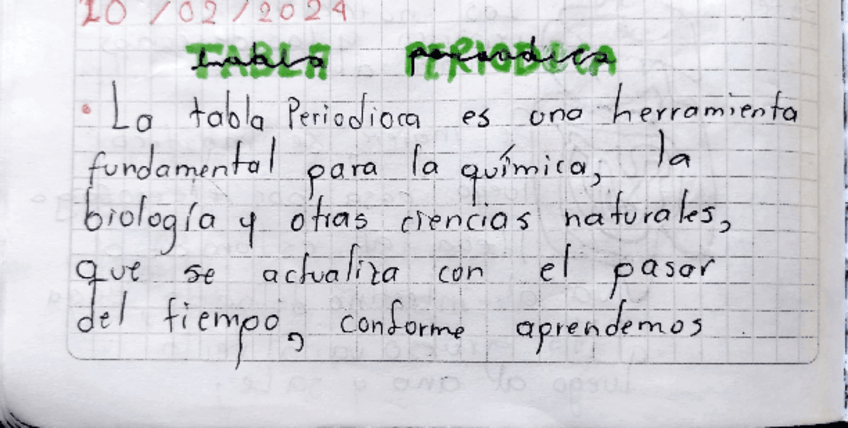 20/02/2024
TABLA PERIODICA
• La tabla Periodioca es una herramienta
fundamental para la química, la
biología y otras ciencias naturales,
que se actualiza con el pasar
del tiempo, conforme aprendemos.